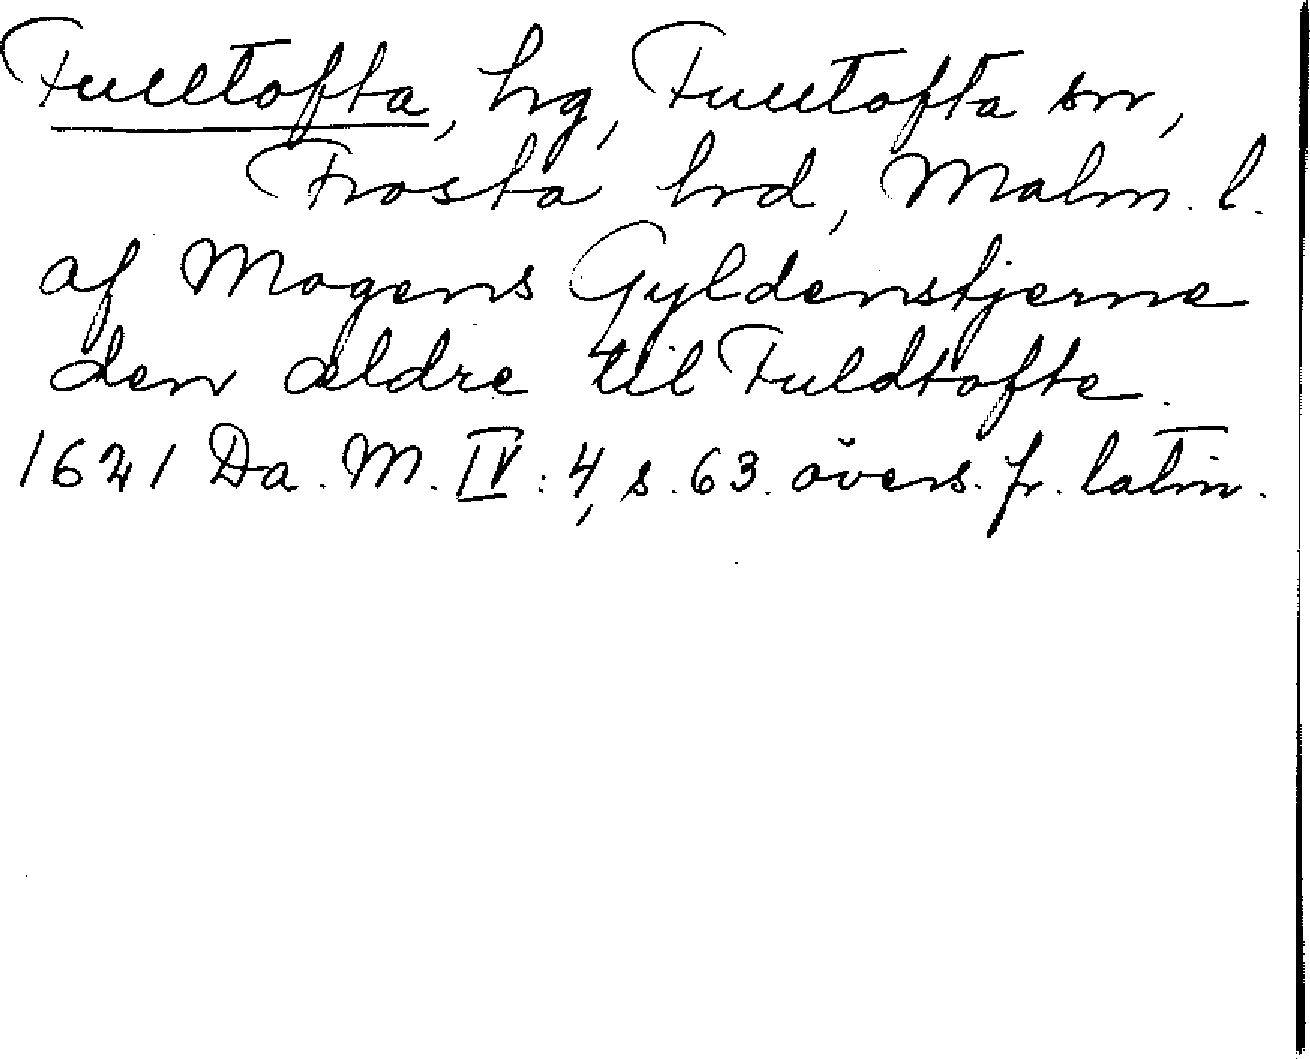 Fulltofta, hg, Fulltofta sn,
Frosta hrd, Malm. l.
af Mogens Gyldenstjerne
den ældre til Fuldtofte.
1621 Da. M. IV: 4, s. 63. övers. fr. latin.